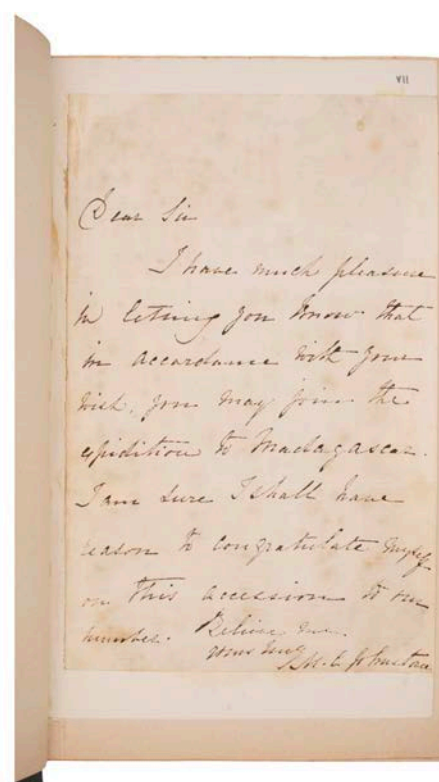 VII
Dear Sir
I have much pleasure
in letting you know that
in accordance with your
wish, you may join the
expedition to Madagascar.
I am sure I shall have
reason to congratulate myself
on this accession to our
number. Believe me
yours truly
Johnstone